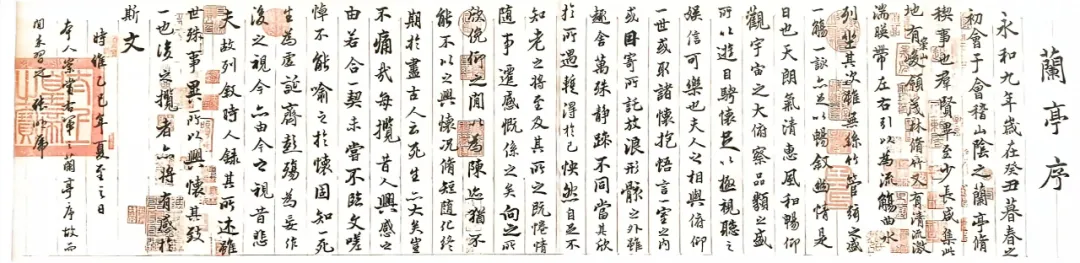 蘭亭序
永和九年歲在癸丑暮春之
初會于會稽山陰之蘭亭脩
稧事也群賢畢至少長咸集此
地有峻領茂林脩竹又有清流激
湍暎帶左右引以為流觴曲水
列坐其次雖無絲竹管絃之盛
一觴一詠亦足以暢敘幽情是
日也天朗氣清惠風和暢仰
觀宇宙之大俯察品類之盛
所以遊目騁懷足以極視聽之
娛信可樂也夫人之相與俯仰
一世或取諸懷抱悟言一室之內
或因寄所託放浪形骸之外雖
趣舍萬殊靜躁不同當其欣
於所遇蹔得於己怏然自足不
知老之將至及其所之既惓情
隨事遷感慨係之矣向之所
欣俛仰之閒以為陳迹猶不
能不以之興懷況脩短隨化終
期於盡古人云死生亦大矣豈
不痛哉每攬昔人興感之
由若合一契未嘗不臨文嗟
悼不能喻之於懷固知一死
生為虛誕齊彭殤為妄作
後之視今亦由今之視昔悲
夫故列敘時人錄其所述雖
世殊事異所以興懷其致
一也後之攬者亦將有感於
斯文
時維乙巳年夏至之日
本人崇右軍之蘭亭序故而
閒來習之